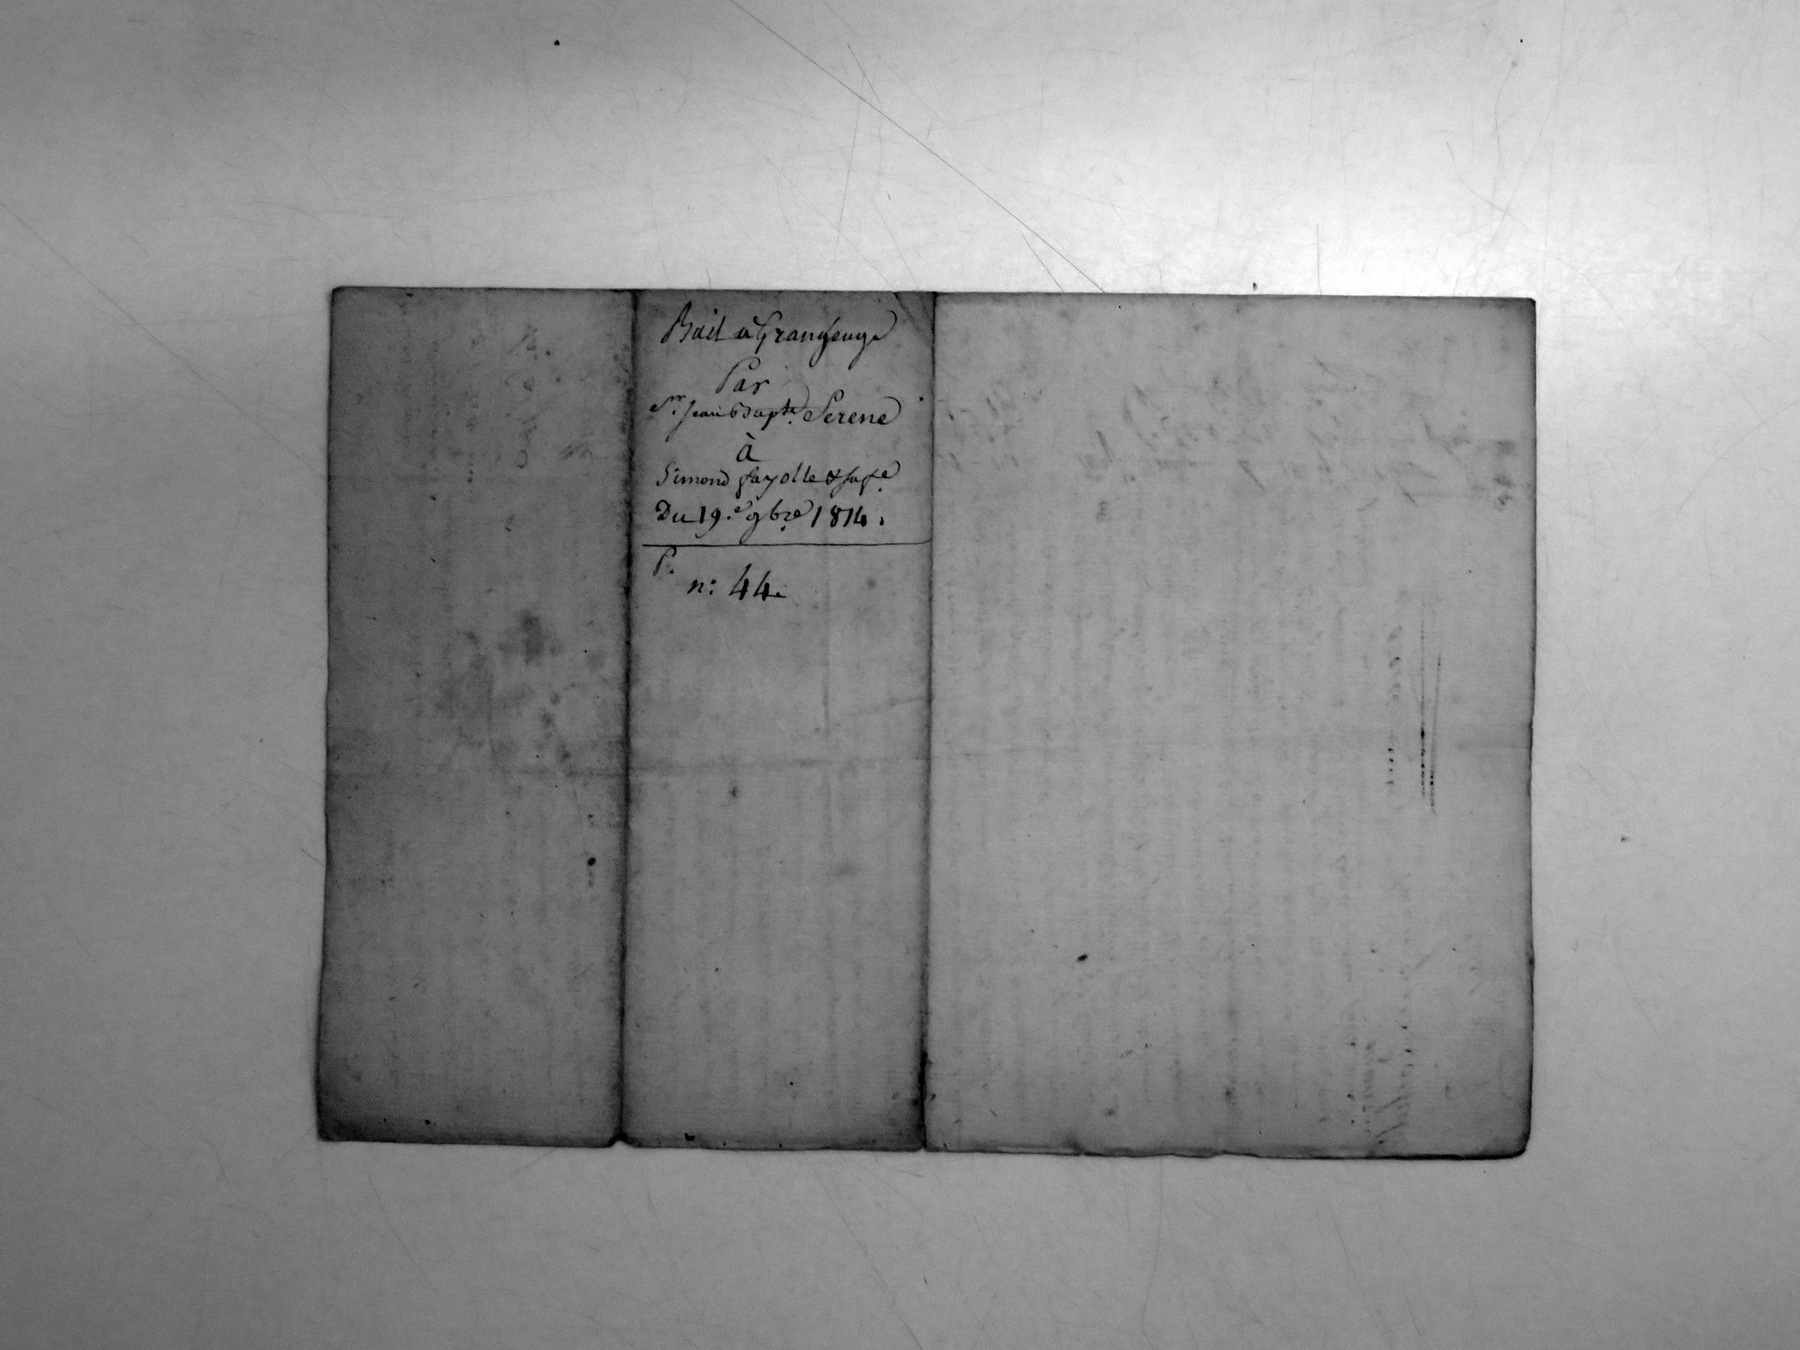 Bail a Grangeage
Par
Sr. Jean Bapte. Serene
à
Simond fayolle & sa fe.
Du 19.e 9bre 1814.
P.
n: 44.